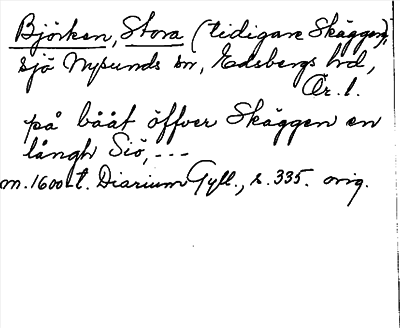 Björken, Stora (tidigare Skäggen),
sjö Nysunds sn, Edsbergs hd,
Ör. l.
på bååt öffver Skäggen en
långh Siö, ---
m. 1600-t. Diarium Gyll., s. 335. orig.